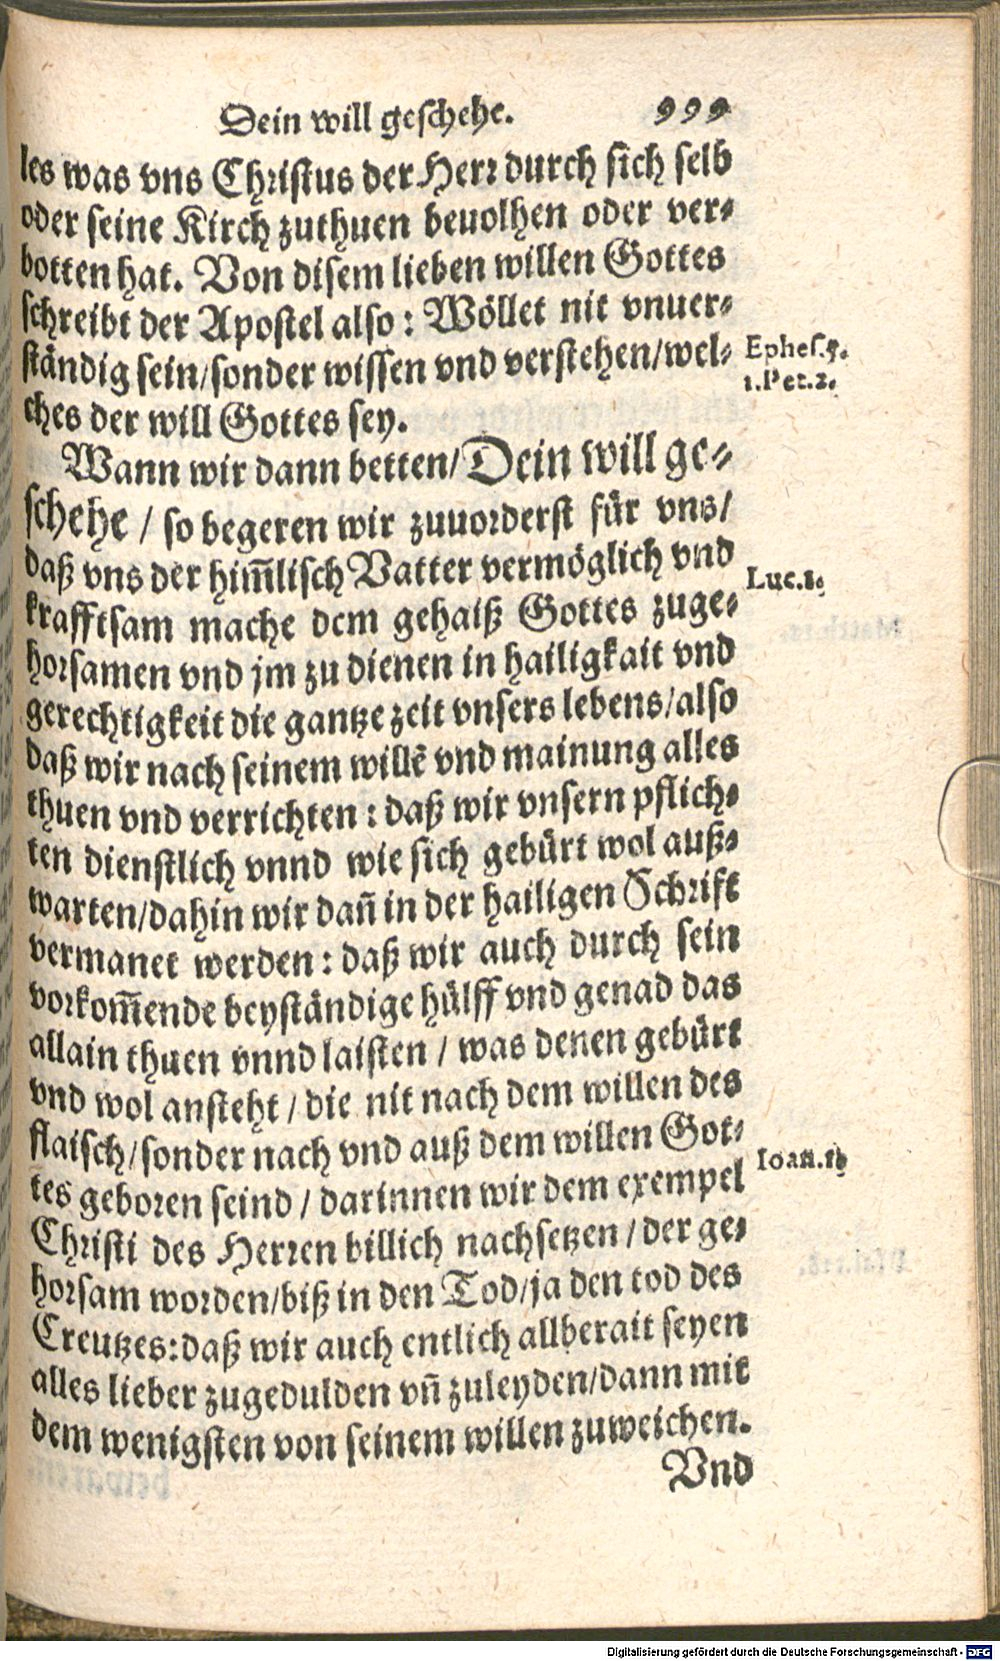 Dein will geschehe. 999
les was vns Christus der Herr durch sich selb
oder seine Kirch zuthuen beuolhen oder ver-
botten hat. Von disem lieben willen Gottes
schreibt der Apostel also: Wöllet nit vnuer-
ständig sein/sonder wissen vnd verstehen/wel-
Ephes.5.
1.Pet.2.
ches der will Gottes sey.
Wann wir dann betten/Dein will ge-
schehe / so begeren wir zuuorderst für vns/
daß vns der him̃lisch Vatter vermöglich vnd
Luc.1.
krafftsam mache dem gehaiß Gottes zuge-
horsamen vnd jm zu dienen in hailigkait vnd
gerechtigkeit die gantze zeit vnsers lebens/also
daß wir nach seinem willẽ vnd mainung alles
thuen vnd verrichten: daß wir vnsern pflich-
ten dienstlich vnnd wie sich gebürt wol auß-
warten/dahin wir dañ in der hailigen Schrift
vermanet werden: daß wir auch durch sein
vorkom̃ende beyständige hülff vnd genad das
allain thuen vnnd laisten / was denen gebürt
vnd wol ansteht / die nit nach dem willen des
flaisch/sonder nach vnd auß dem willen Got-
Ioan.1.
tes geboren seind / darinnen wir dem exempel
Christi des Herren billich nachsetzen / der ge-
horsam worden/biß in den Tod/ja den tod des
Creutzes:daß wir auch entlich allberait seyen
alles lieber zugedulden vñ zuleyden/dann mit
dem wenigsten von seinem willen zuweichen.
Vnd
Digitalisierung gefördert durch die Deutsche Forschungsgemeinschaft - DFG